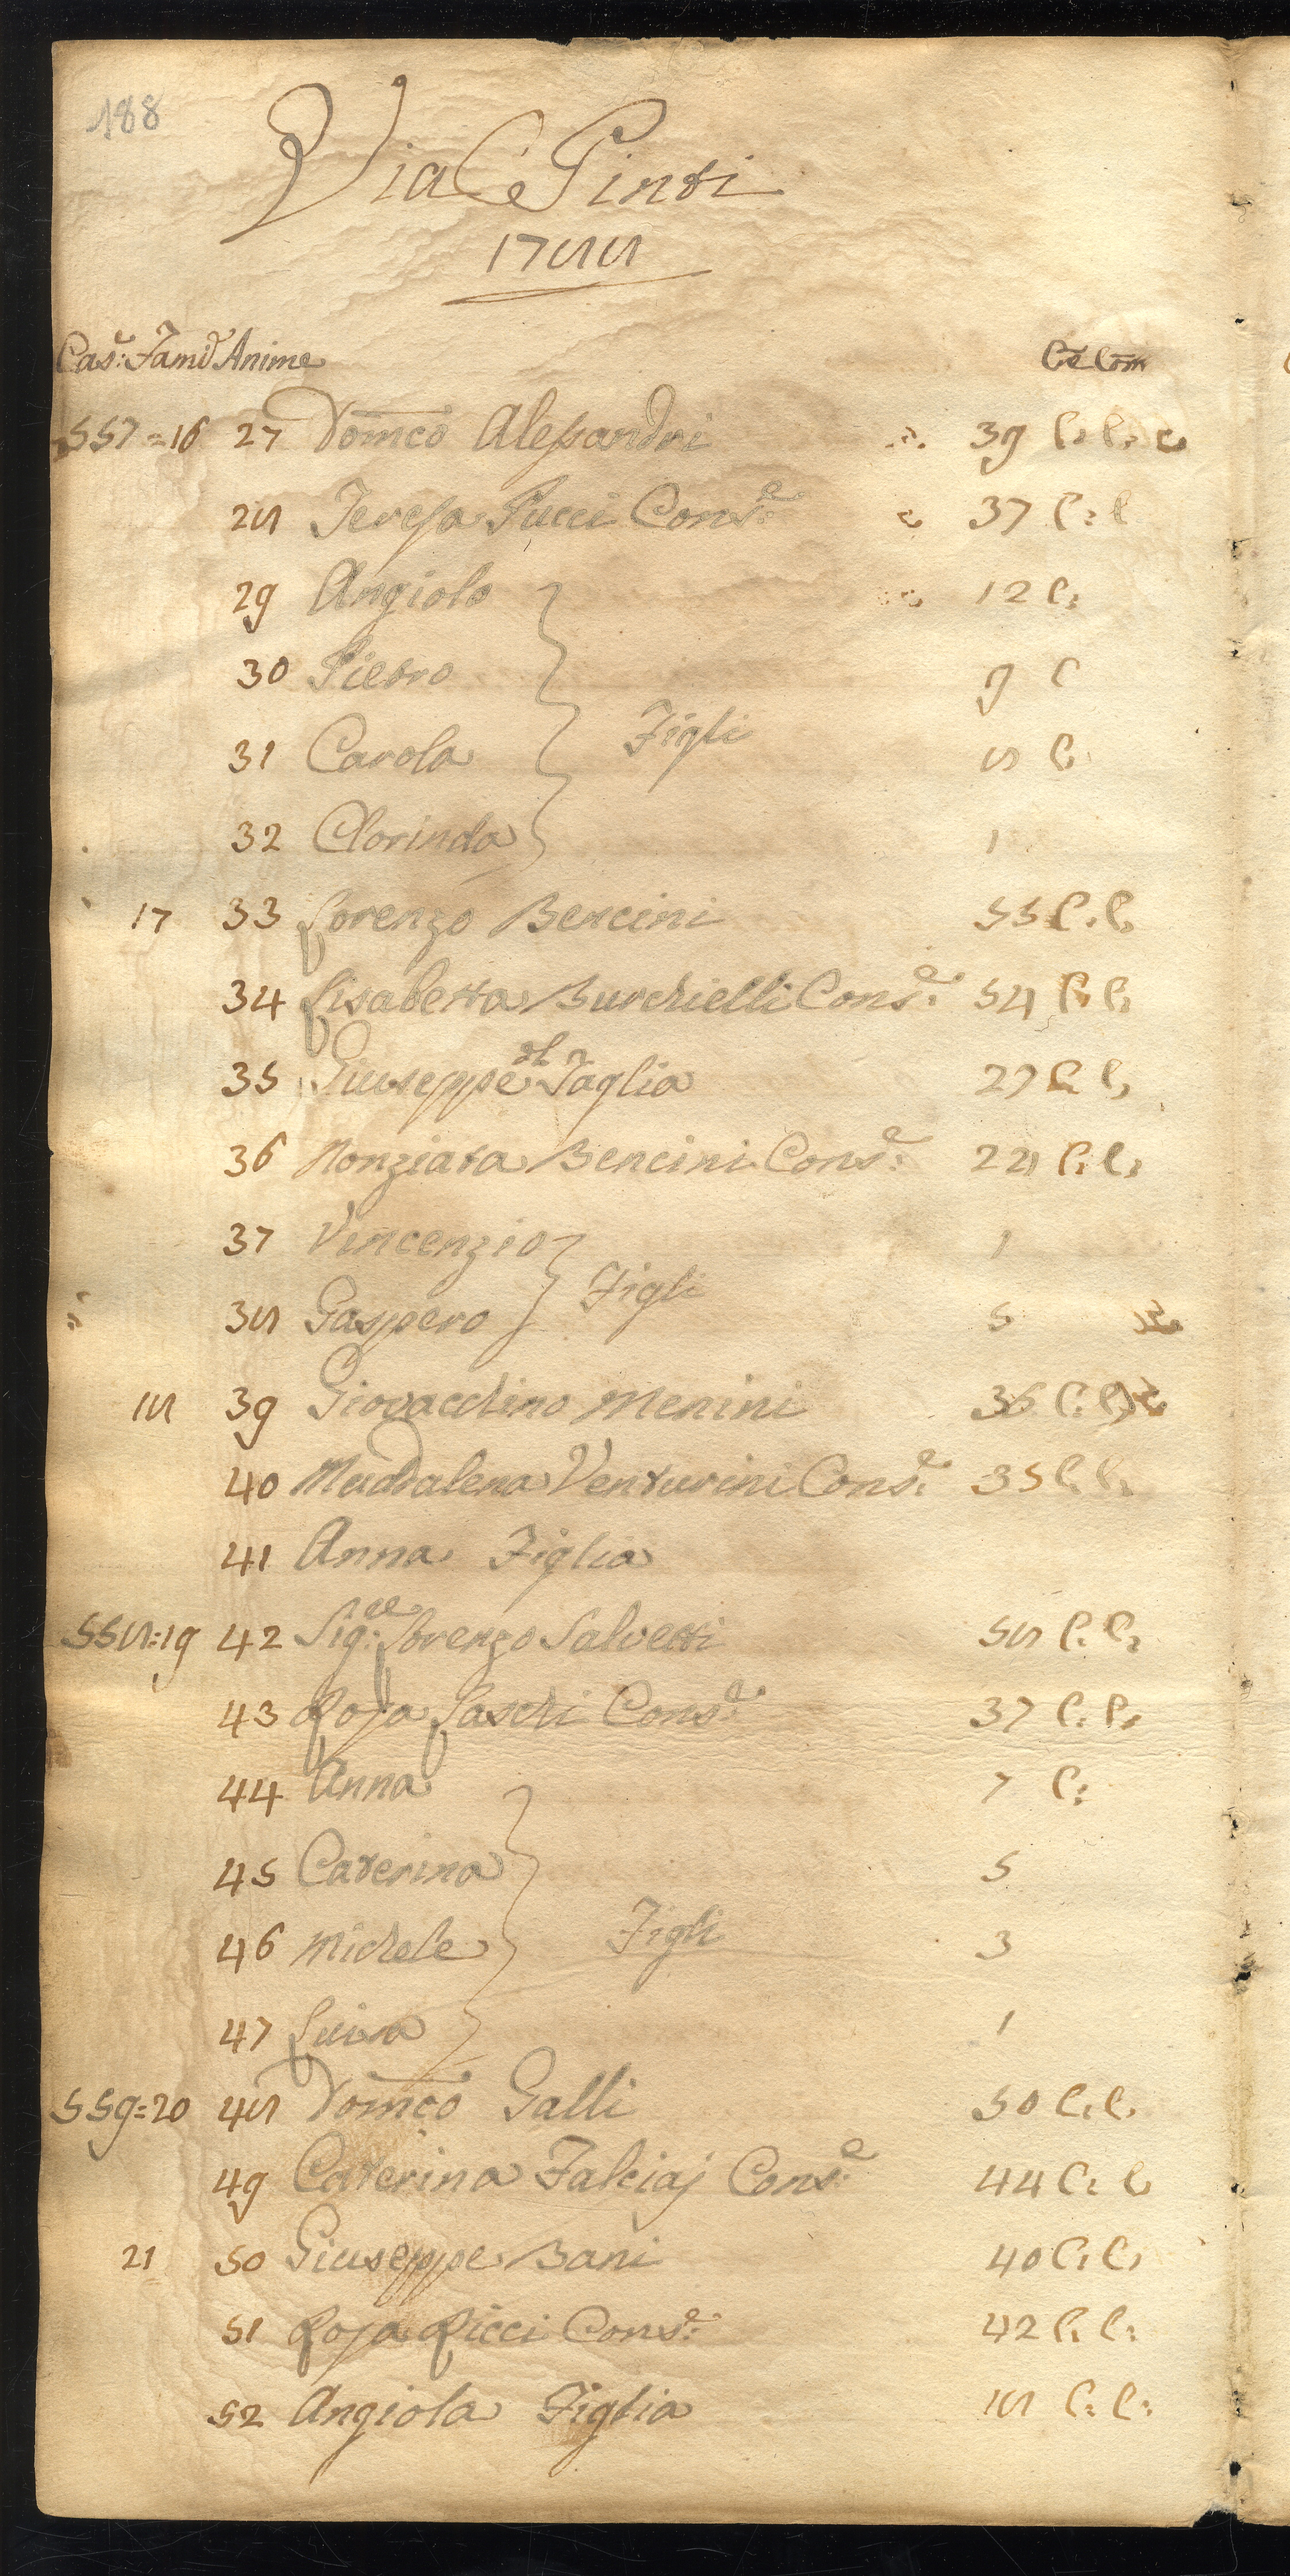 188
Via Ce Pinti
1788
Cas.e: Fam: Anime Ce Com
557=16 27 Dom.co Alessandri 39 C: C:
28 Teresa Pucci Cons.e: 37 C: C
29 Angiolo 12 C:
30 Pietro 9 C
31 Carola Figli 8 C:
32 Clorinda 1
17 33 Lorenzo Bencini 55 C: C:
34 Lisabetta Burchielli Cons.e: 54 C: C:
35 Giuseppe del Taglia 27 C: C:
36 Nonziata Bencini Cons.e: C: C:
37 Vincenzio Figli 1
38 Gaspero 5
18 39 Giovacchino Menini 36 C: C:
40 Maddalena Venturini Cons.e: 35 C: C:
41 Anna Figlia
558:19 42 Sig.re: Lorenzo Salvetti 58 C: C:
43 Rosa Paschi Cons.e: 37 C: C:
44 Anna 7 C:
45 Caterina 5
46 Michele Figli 3
47 Luisa 1
559=20 48 Dom.co Galli 50 C: C:
49 Caterina Falciaj Cons.e: 44 C: C:
21 50 Giuseppe Bani 40 C: C:
51 Rosa Ricci Cons.e: 42 C: C:
52 Angiola Figlia 18 C: C: